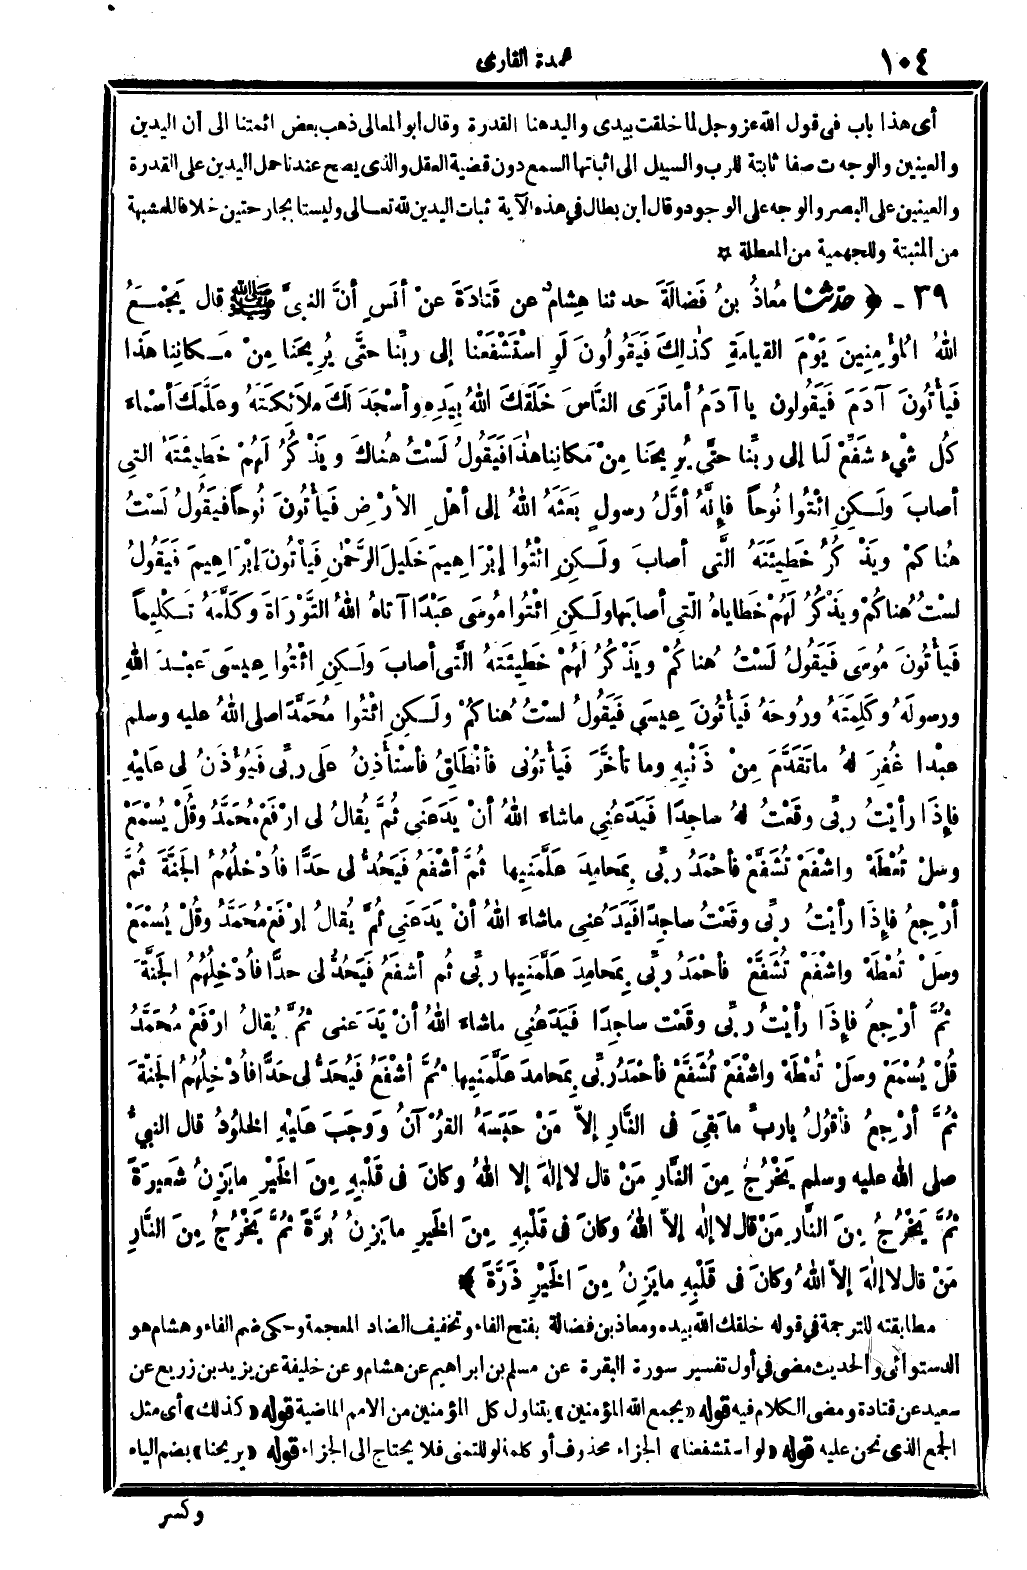 ١٠٤
عمدة القارى
أى هذا باب فى قول الله عز وجل لما خلقت بيدى واليد هنا القدرة وقال أبو المعالى ذهب بعض ائمتنا الى أن اليدين
والعينين والوجه صفات ثابتة للرب والسبيل الى اثباتها السمع دون قضية العقل والذى يصح عندنا حمل اليدين على القدرة
والعينين على البصر والوجه على الوجود وقال ابن بطال في هذه الآية ثبات اليدين لله تعالى وليستا بجارحتين خلافا للمشبهة
من المثبتة وللجهمية من المعطلة ۞
٣٩ - ﴿ حَدَّثَنَا مُعَاذُ بنُ فَضَالَةَ حدثنا هِشامٌ عن قَتادَةَ عنْ أنَسٍ أنَّ النبىَّ ﷺ قال يَجْمَعُ
اللهُ المُؤْمِنِينَ يَوْمَ القيامةِ كَذٰلِكَ فَيَقُولُونَ لَوِ اسْتَشْفَعْنا إلى ربِّنا حتَّى يُرِيحَنا مِنْ مَكانِنا هذَا
فَيأْتُونَ آدَمَ فَيَقُولون يا آدَمُ أما تَرَى النَّاسَ خَلَقَكَ اللهُ بِيَدِهِ وأسْجَدَ لَكَ ملاَئِكَتَهُ وعَلَّمَكَ أسْماءَ
كُلِّ شْىءٍ شَفِّعْ لَنا إلى ربِّنا حتَّى يُرِيحَنا مِنْ مَكانِنا هٰذَا فَيَقُولُ لَسْتُ هُناكَ ويَذْكُرُ لَهُمْ خَطِيئَتَهُ التى
أصابَ ولَكنِ ائْتُوا نُوحاً فإِنَّهُ أوَّلُ رسولٍ بَعَثَهُ اللهُ إلى أهْلِ الأرْضِ فَيأْتُونَ نُوحاً فيَقُولُ لَسْتُ
هُناكُمْ ويَذْكُرُ خَطِيئَتَهُ الَّتى أصابَ ولَكنِ ائْتُوا إبْرَاهِيمَ خَلِيلَ الرَّحْمٰنِ فَيأْتُونَ إبْرَاهِيمَ فَيَقُولُ
لسْتُ هُناكُمْ ويَذْكُرُ لَهُمْ خَطاياهُ الّتِى أصابَها ولَكنِ ائْتُوا مُوسَى عَبْدًا آتاهُ اللهُ التَّوْرَاةَ وكَلَّمَهُ تَكْلِيماً
فَيأْتُونَ مُوسَى فَيَقُولُ لَسْتُ هُناكُمْ ويَذْكُرُ لَهُمْ خَطِيئَتَهُ الَّتى أصابَ ولَكنِ ائْتُوا عِيسَى عَبْدَ اللهِ
ورسولَهُ وكَلِمَتَهُ ورُوحَهُ فَيأْتُونَ عِيسَى فَيَقُولُ لسْتُ هُناكُمْ ولَكنِ ائْتُوا مُحَمَّدًا صلى اللهُ عليه وسلم
عبْدا غُفِرَ لهُ ما تَقَدَّمَ مِنْ ذَنْبِهِ وما تأخَّرَ فَيأْتُونى فأنْطَلِقُ فأسْتأْذِنُ علَى ربِّى فَيُؤْذَنُ لِى علَيْهِ
فإِذَا رأيْتُ ربِّى وقَعْتُ لهُ ساجِدًا فَيَدَعُنِى ماشاءَ اللهُ أنْ يَدَعَنِى ثُمَّ يُقالُ لى ارْفَعْ مُحَمَّدُ وقُلْ يُسْمَعْ
وسَلْ تُعْطَهْ واشْفَعْ تُشَفَّعْ فأحْمَدُ ربِّى بِمَحامِدَ عَلَّمَنِيها ثُمَّ أشْفَعُ فَيَحُدُّ لى حَدًّا فأُدْخِلُهُمُ الجَنَّةَ ثُمَّ
أرْجِعُ فإِذَا رأيْتُ ربِّى وقَعْتُ ساجِدًا فَيَدَعُنِى ماشاءَ اللهُ أنْ يَدَعَنِى ثُمَّ يُقالُ ارْفَعْ مُحَمَّدُ وقُلْ يُسْمَعْ
وسَلْ تُعْطَهْ واشْفَعْ تُشَفَّعْ فأحْمَدُ ربِّى بِمَحامِدَ عَلَّمَنِيها ربِّى ثُم أشْفَعُ فَيَحُدُّ لى حدًّا فأُدْخِلُهُمُ الجَنَّةَ
ثُمَّ أرْجِعُ فإِذَا رأيْتُ ربِّى وقَعْت ساجِدًا فَيَدَعُنِى ماشاءَ اللهُ أنْ يَدَعَنى ثُمَّ يُقالُ ارْفَعْ مُحَمَّدُ
قُلْ يُسْمَعْ وسَلْ تُعْطَهْ واشْفَعْ تُشَفَّعْ فأحْمَدُ ربِّى بِمَحامِدَ عَلَّمَنِيها ثُمَّ أشْفَعُ فَيَحُدُّ لى حَدًّا فأُدْخِلُهُمُ الجَنَّةَ
ثُمَّ أرْجِعُ فأقُولُ ياربِّ ما بَقِىَ فى النَّارِ إلاَّ مَنْ حَبَسَهُ القُرْآنُ ووَجَبَ علَيْهِ الخلُودُ قال النبىُّ
صلى الله عليه وسلم يَخْرُجُ مِنَ النَّارِ مَنْ قال لا إلٰهَ إلا اللهُ وكانَ فى قَلْبِهِ مِنَ الخَيْرِ ما يَزِنُ شَعِيرَةً
ثُمَّ يَخْرُجُ مِنَ النَّارِ مَنْ قال لا إلٰه إلاّ اللهُ وكانَ فى قَلْبِهِ مِنَ الخَيرِ ما يَزِنُ بُرَّةً ثُمَّ يَخْرُجُ مِنَ النَّارِ
مَنْ قال لا إلٰهَ إلاّ اللهُ وكانَ فى قَلْبِهِ ما يَزِنُ مِنَ الخَيْرِ ذَرَّةً ﴾
مطابقته للترجمة في قوله خلقك الله بيده ومعاذ بن فضالة بفتح الفاء وتخفيف الضاد المعجمة وحكى ضم الفاء وهشام هو
الدستوائى والحديث مضى في أول تفسير سورة البقرة عن مسلم بن ابراهيم عن هشام وعن خليفة عن يزيد بن زريع عن
سعيد عن قتادة ومضى الكلام فيه قوله «يجمع الله المؤمنين» يتناول كل المؤمنين من الامم الماضية قوله «كذلك» أى مثل
الجمع الذى نحن عليه قوله «لو استشفعنا» الجزاء محذوف أو كلمة لو للتمنى فلا يحتاج الى الجزاء قوله «يريحنا» بضم الياء
وكسر